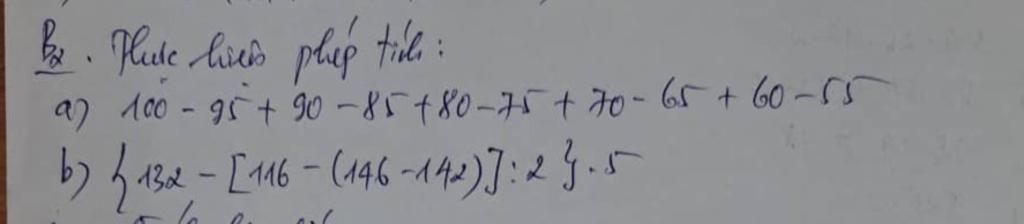 B2. Thực hiện phép tính:
a) 100 - 95 + 90 - 85 + 80 - 75 + 70 - 65 + 60 - 55
b) { 132 - [116 - (146 - 142)] : 2 } . 5